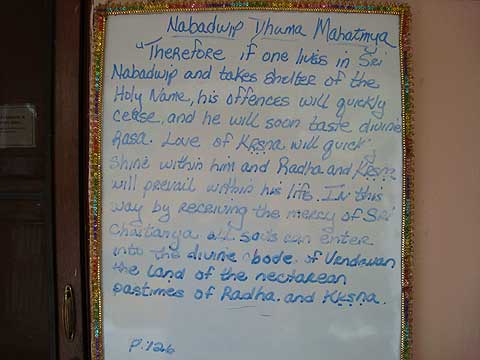 Nabadwip Dhama Mahatmya
"Therefore if one lives in Sri
Nabadwip and takes shelter of the
Holy Name, his offences will quickly
cease, and he will soon taste divine
Rasa. Love of Kṛṣna will quickly
shine within him and Radha and Kṛṣna
will prevail within his life. In this
way by receiving the mercy of Sri
Chaitanya all souls can enter
into the divine abode of Vrndavan
the land of the nectarean
pastimes of Radha and Kṛṣna.
P. 126